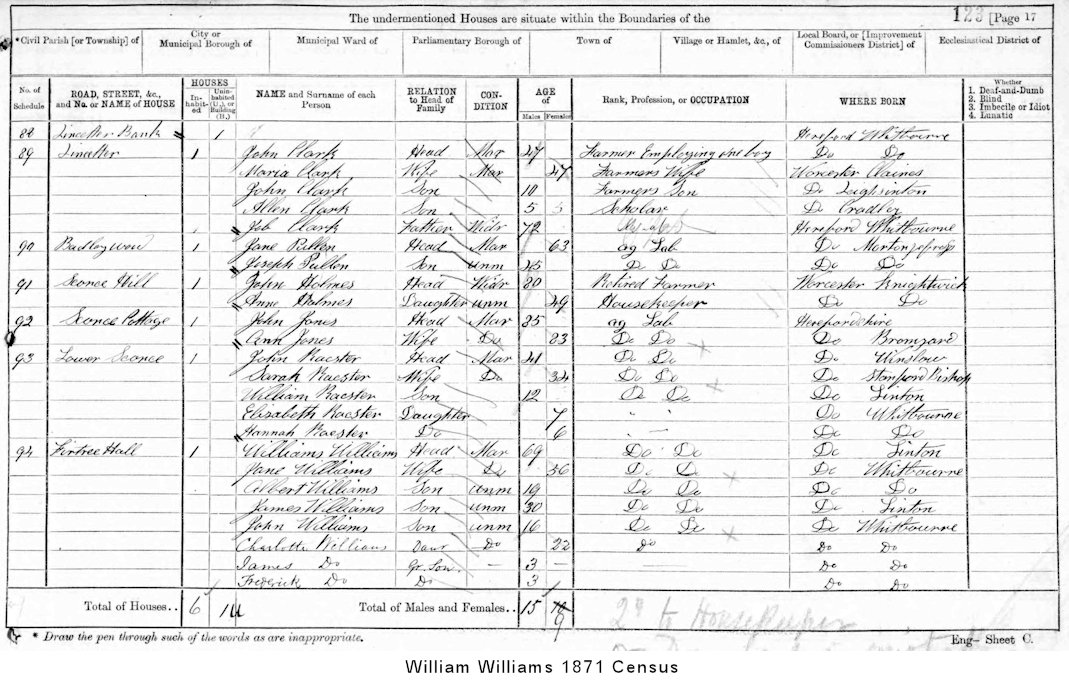 The undermentioned Houses are situate within the Boundaries of the 123 [Page 17
*Civil Parish [or Township] of City or Municipal Borough of Municipal Ward of Parliamentary Borough of Town of Village or Hamlet, &c., of Local Board, or [Improvement Commissioners District] of Ecclesiastical District of
No. of Schedule ROAD, STREET, &c., and No. or NAME of HOUSE HOUSES Inhabited Uninhabited (U.), or Building (B.) NAME and Surname of each Person RELATION to Head of Family CONDITION AGE of Males Females Rank, Profession, or OCCUPATION WHERE BORN Whether 1. Deaf-and-Dumb 2. Blind 3. Imbecile or Idiot 4. Lunatic
88 Lincetter Bank 1 Hereford Whitbourne
89 Lincetter 1 John Clark Head Mar 47 Farmer Employing one boy Do Do
Maria Clark Wife Mar 47 Farmers Wife Worcester Claines
John Clark Son 10 Farmers Son Do
Allen Clark Son 5 Scholar Do Cradley
Job Clark Father Widr 72 Hereford Whitbourne
90 1 Jane Pullen Head Mar 63 ag Lab Do
Joseph Pullen Son unm Do Do Do Do
91 Sconce Hill 1 John Holmes Head Widr 80 Retired Farmer Worcester Knightwick
Anne Holmes Daughter unm 49 Housekeeper Do Do
92 Sconce Cottage 1 John Jones Head Mar 85 ag Lab Herefordshire
Ann Jones Wife Do 83 Do Do Do Bromyard
93 Lower Sconce 1 John Racster Head Mar 41 Do Do Do Winslow
Sarah Racster Wife Do 34 Do Do Do Stanford Bishop
William Racster Son 12 Do Do Do Linton
Elizabeth Racster Daughter 7 Do Whitbourne
Hannah Racster Do 6 Do Do
94 Firtree Hall 1 Williams Williams Head Mar 69 Do Do Do Linton
Jane Williams Wife Do 56 Do Do Do Whitbourne
Albert Williams Son unm 19 Do Do Do Do
James Williams Son unm 30 Do Do Do Linton
John Williams Son unm 16 Do Do Do Whitbourne
Charlotte Williams Daur Do 22 Do Do Do
James Do Gr. Son 3 Do Do
Frederick Do Do 3 Do Do
Total of Houses.. 6 1U Total of Males and Females.. 15 9
to Housekeeper
* Draw the pen through such of the words as are inappropriate. Eng— Sheet C.
William Williams 1871 Census